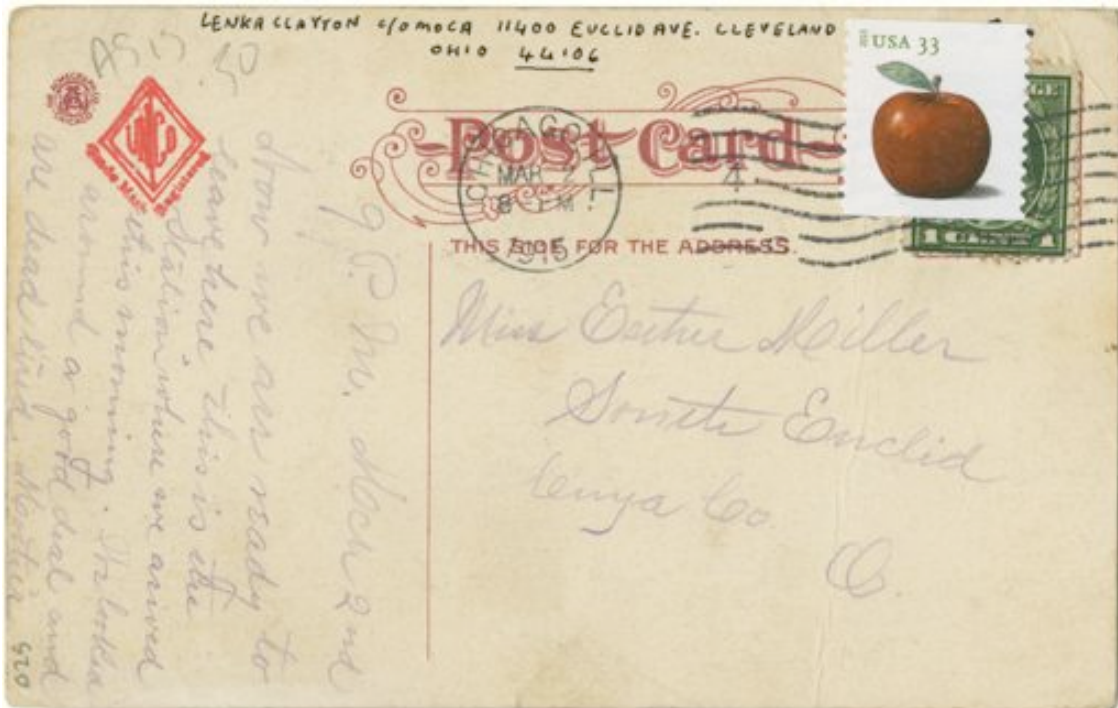 LENKA CLAYTON C/O MOCA 11400 EUCLID AVE. CLEVELAND
OHIO 44106
USA 33
Post Card
CHICAGO, ILL.
MAR 2
8 PM
1915
4
THIS SIDE FOR THE ADDRESS.
Miss Esther Miller
South Euclid
Cuya Co.
O.
9 P. M. Mch 2nd
Now we are ready to
leave here this is the
Station where we arrived
this morning. We looked
around a good deal and
are dead tired. Mother
UMCo
Trade Mark Registered